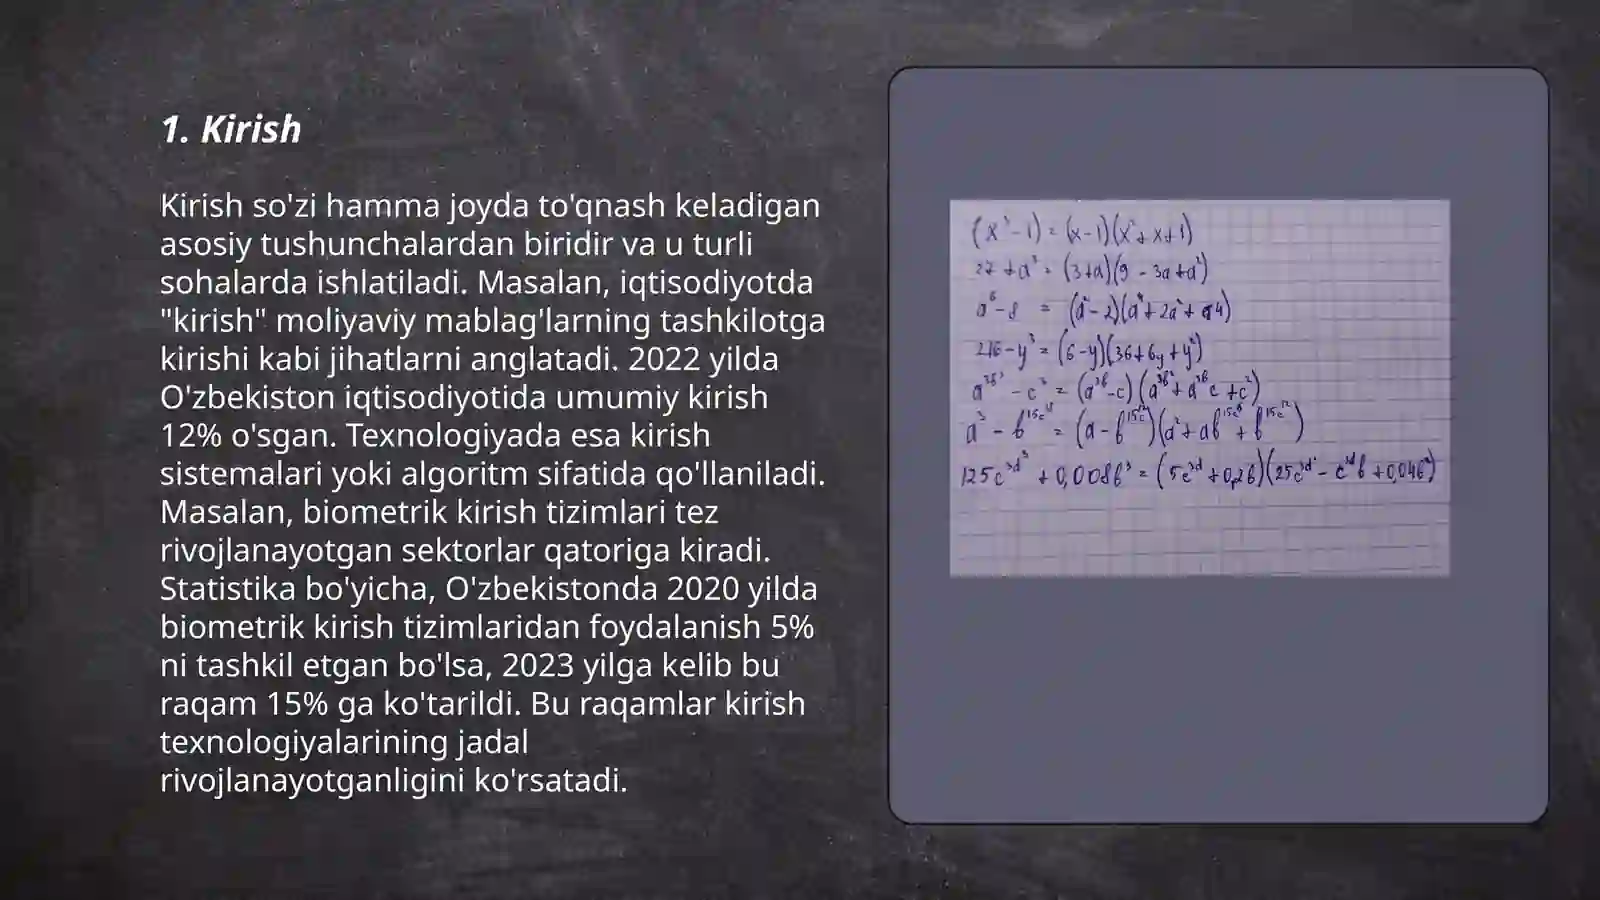 1. Kirish
Kirish so'zi hamma joyda to'qnash keladigan
asosiy tushunchalardan biridir va u turli
sohalarda ishlatiladi. Masalan, iqtisodiyotda
"kirish" moliyaviy mablag'larning tashkilotga
kirishi kabi jihatlarni anglatadi. 2022 yilda
O'zbekiston iqtisodiyotida umumiy kirish
12% o'sgan. Texnologiyada esa kirish
sistemalari yoki algoritm sifatida qo'llaniladi.
Masalan, biometrik kirish tizimlari tez
rivojlanayotgan sektorlar qatoriga kiradi.
Statistika bo'yicha, O'zbekistonda 2020 yilda
biometrik kirish tizimlaridan foydalanish 5%
ni tashkil etgan bo'lsa, 2023 yilga kelib bu
raqam 15% ga ko'tarildi. Bu raqamlar kirish
texnologiyalarining jadal
rivojlanayotganligini ko'rsatadi.
(x³-1) = (x-1)(x²+x+1)
27+a³ = (3+a)(9-3a+a²)
a⁶-8 = (a²-2)(a⁴+2a²+4)
216-y³ = (6-y)(36+6y+y²)